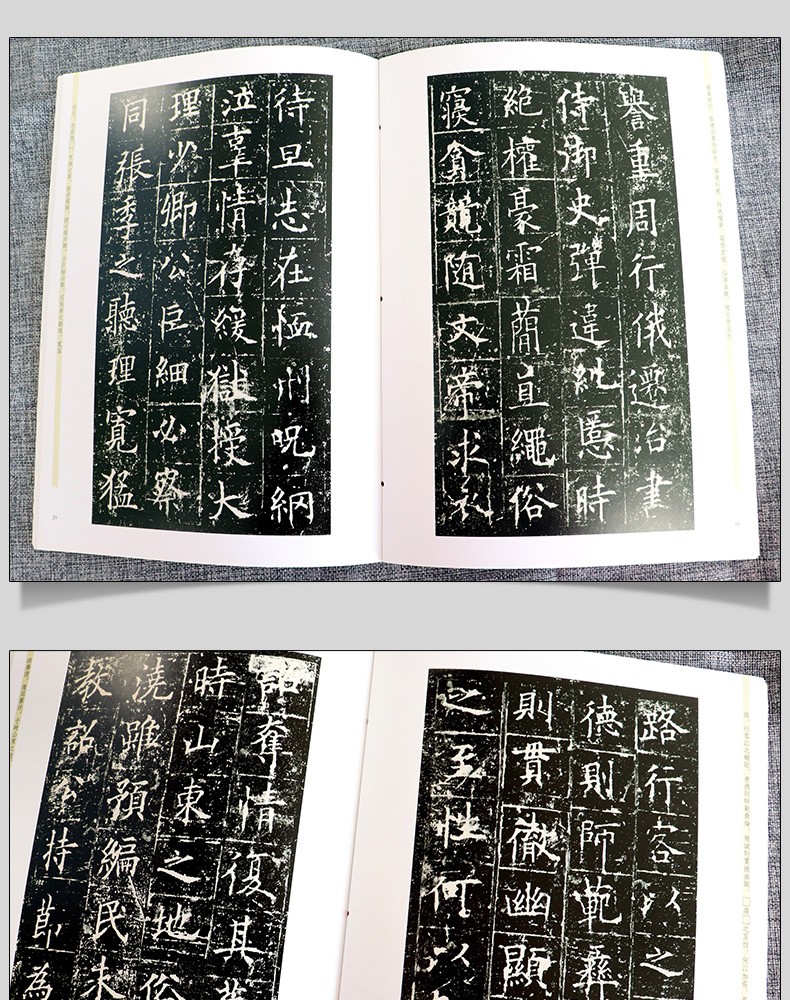 譽重周行俄遷治書
侍御史彈違糺慝時
絶權豪霜蕑直繩俗
寢貪競随文帝求衣
待旦志在恤刑咒網
泣辜情存緩獄授大
理少卿公巨細必察
同張季之聽理寛猛
路行客以之
德則師範彝
則貫徹幽顯
之至性何以
奪情復其
時山東之地俗
澆雖預編民未
教詔公持莭為